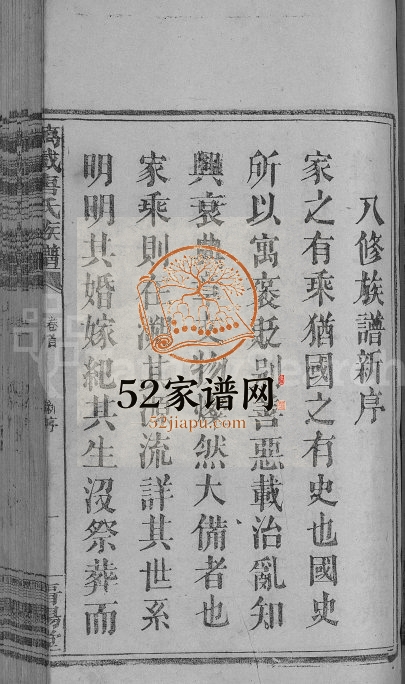 八修族譜新序
家之有乘猶國之有史也國史
所以寓褒貶別善惡載治亂知
興衰典文物燦然大備者也
家乘則在溯其源流詳其世系
明明其婚嫁紀其生沒祭葬而
萬載辛氏族譜
卷首
新序
一
52家谱网
52jiapu.com